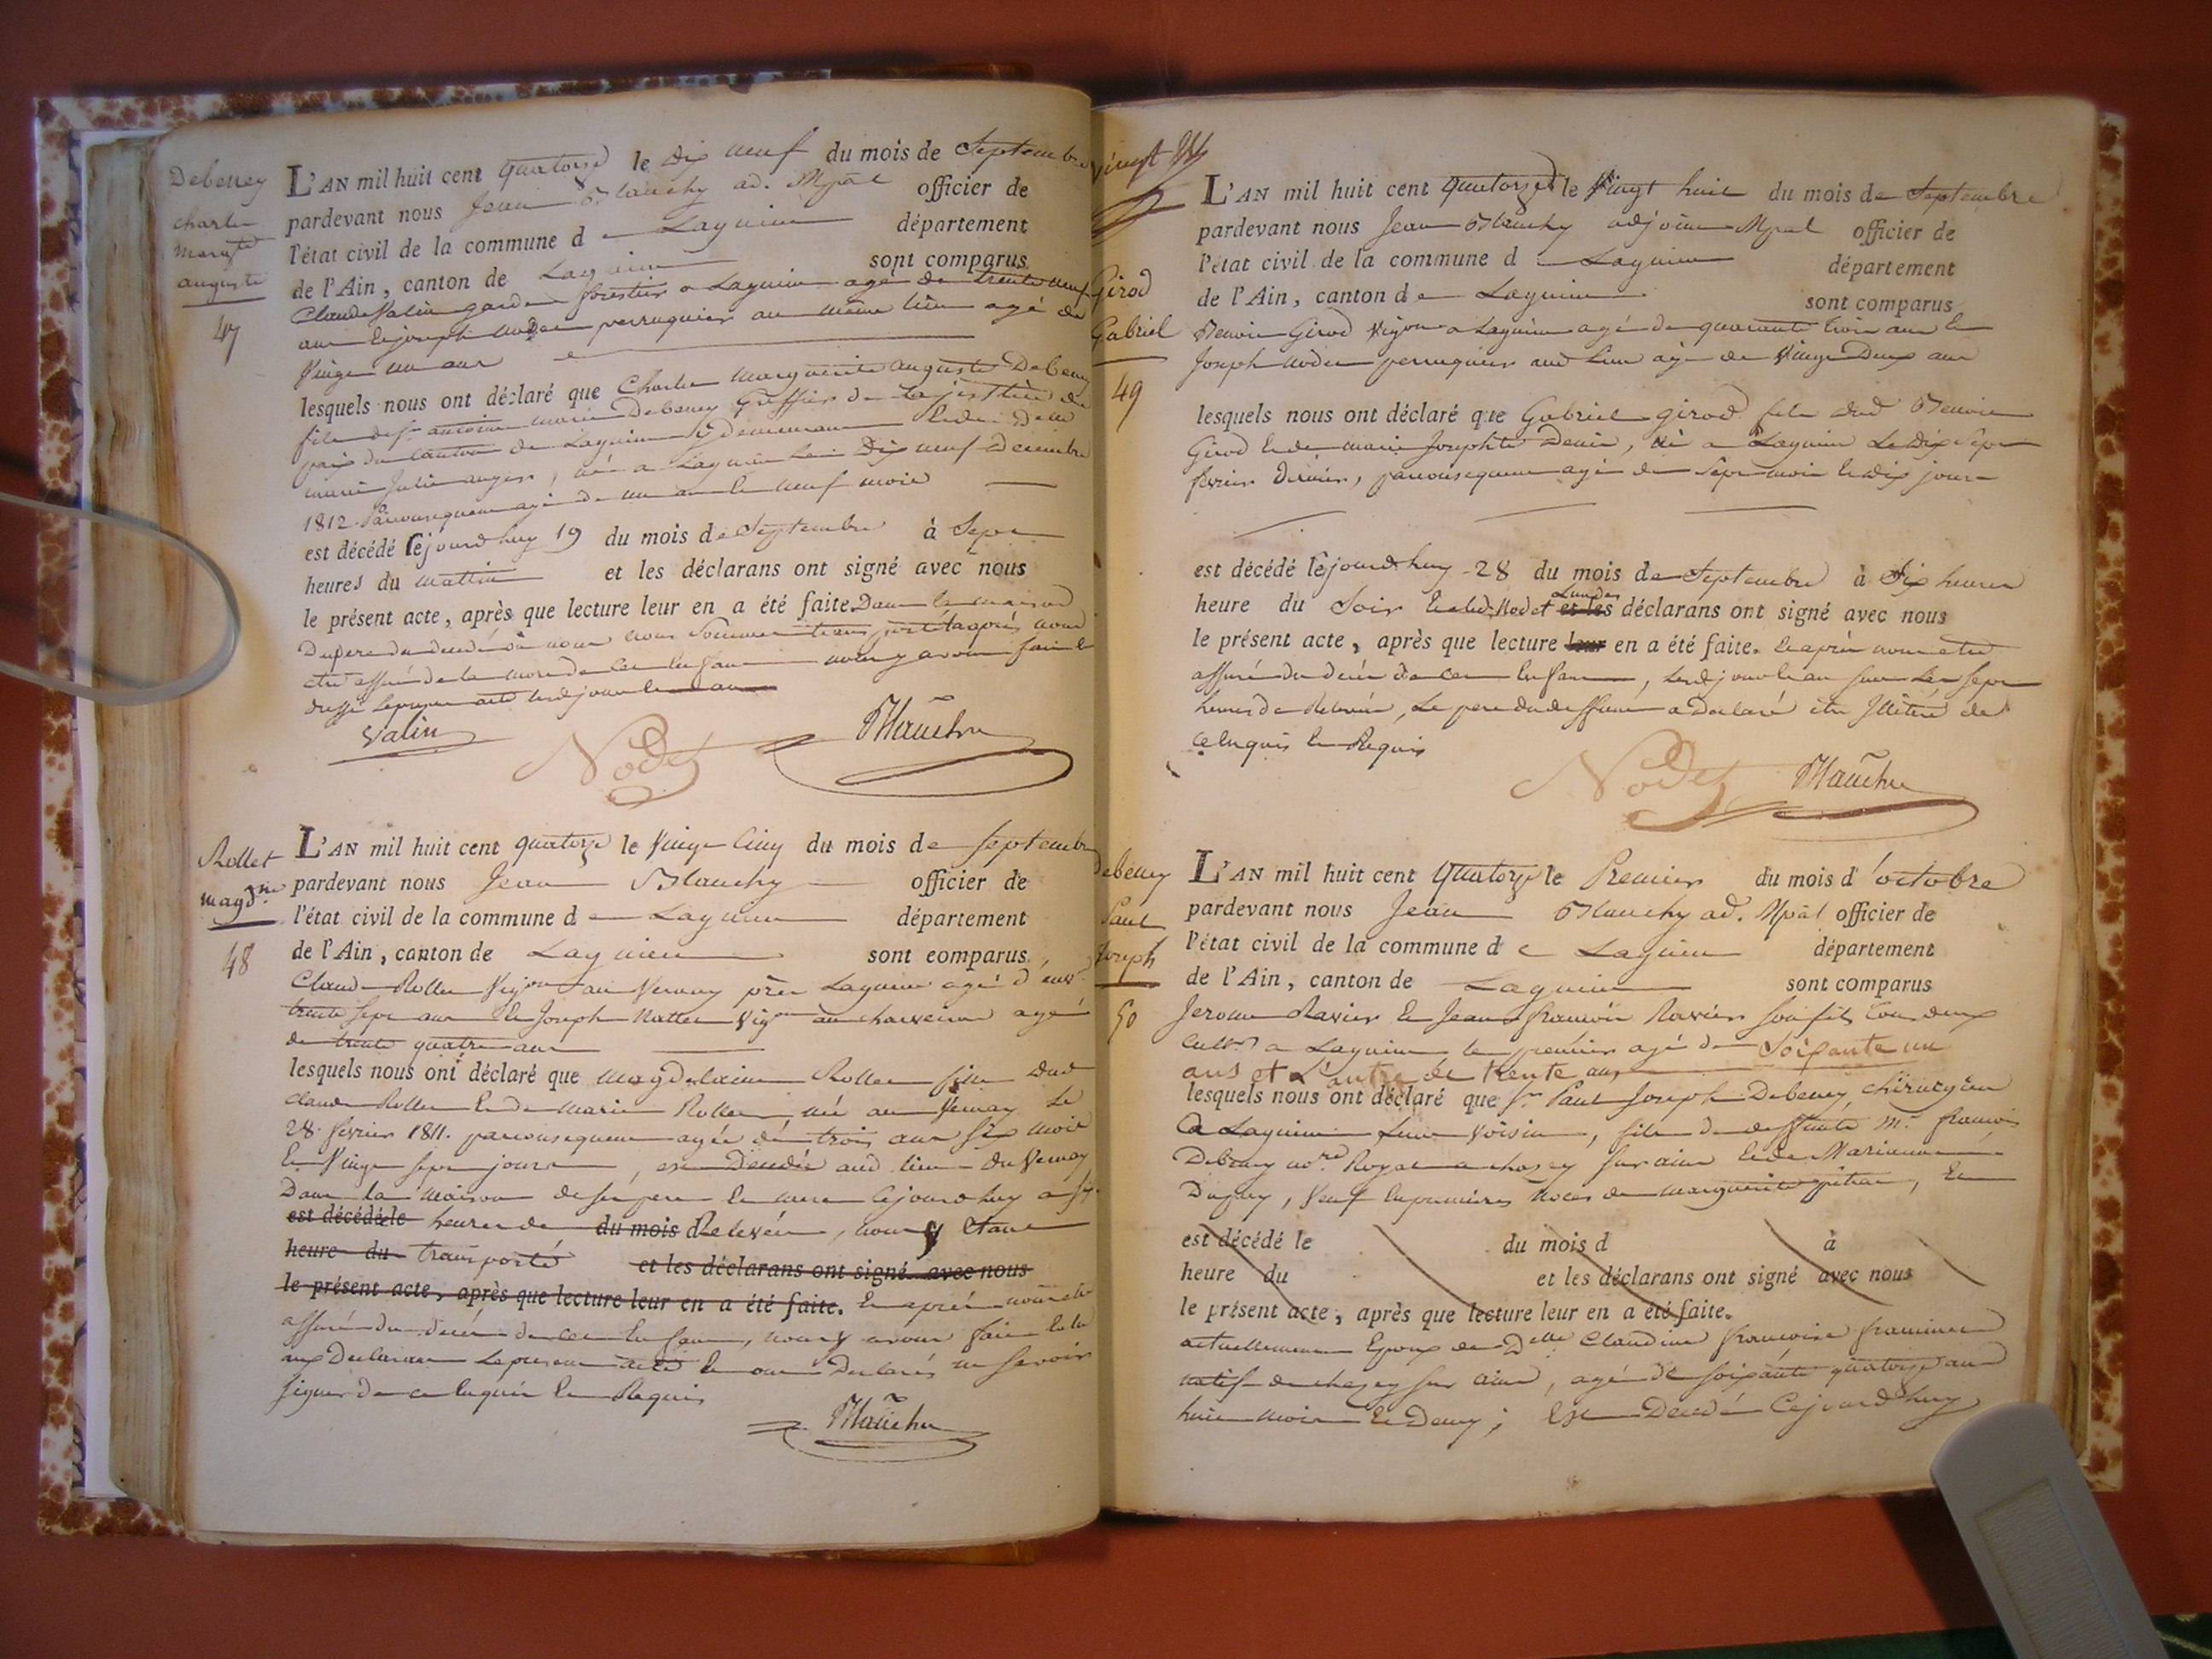 Debeney
charle
margte
auguste
47
L'AN mil huit cent quatorze le dix neuf du mois de Septembre
pardevant nous Jean Blanchy ad. Mpal officier de
l'état civil de la commune de Lagnieu département
de l'Ain, canton de Lagnieu sont comparus
Claude Valin garde forestier a Lagnieu agé de trente neuf
ans et joseph Nodet perruquier au même lieu agé de
Vingt un ans
lesquels nous ont déclaré que Charles Marguerite auguste Debeney
fils de sr antoine marie Debeney Greffier de la justice de
paix du canton de Lagnieu y demeurant et de delle
marie Julie auger, né a Lagnieu le dix neuf decembre
1812. Parconsequent agé de un an et neuf mois
est décédé cejourd'huy 19 du mois de Septembre à Sept
heures du mattin et les déclarans ont signé avec nous
le présent acte, après que lecture leur en a été faite. Dans la maison
Du pere du decedé où nous nous sommes transporté après nous
etre assuré de la mort de cet enfant nous y avons fait et
dressé le present acte lesd jour et an
Valin Nodet Blanchy
Rollet
magdne
48
L'AN mil huit cent quatorze le Vingt Cinq du mois de septembre
pardevant nous Jean Blanchy officier de
l'état civil de la commune de Lagnieu département
de l'Ain, canton de Lagnieu sont comparus,
Claude Rollet Vigon au Vernay près Lagnieu agé d'env
trente sept ans et Joseph Nattet Vign au charveiron agé
de trente quatre ans
lesquels nous ont déclaré que magdelaine Rollet fille dud
claude Rollet et de Marie Rollet, née au Vernay le
28 fevrier 1811. parconsequent agée de trois ans six mois
et Vingt sept jours, est Decedée aud lieu du Vernay
Dans la maison de ses pere et mere cejourd'huy a six
est décédé le heures de du mois d Relevée, nous y etant
heure du transporté et les déclarans ont signé avec nous
le présent acte, après que lecture leur en a été faite. et après nous etre
assuré du decés de cet enfant, nous y avons fait et lu
aux Declarans le present acte et ont Declarés ne savoir
signer de ce enquis et Requis
Blanchy
Vingt
Girod
Gabriel
49
L'AN mil huit cent quatorze le Vingt huit du mois de Septembre
pardevant nous Jean Blanchy adjoint Mpal officier de
l'état civil de la commune de Lagnieu département
de l'Ain, canton de Lagnieu sont comparus
Benoit Girod Vigon a Lagnieu agé de quarante trois ans et
Joseph Nodet perruquier aud lieu agé de Vingt Deux ans
lesquels nous ont déclaré que Gabriel girod fils dud Benoit
Girod et de marie Josephte Denis, né a Lagnieu le dix sept
fevrier dernier, parconsequent agé de sept mois et dix jours
est décédé cejourd'huy 28 du mois de Septembre à Six heures
heure du Soir et led. Nodet l'un des et les déclarans ont signé avec nous
le présent acte, après que lecture leur en a été faite. et après nous etre
assuré du decés de cet enfant, lesd jour et an sur les sept
heures de Relevée, le pere du deffunt a declaré etre Illitéré de
ce enquis et Requis
Nodet Blanchy
Debeney
Paul
Joseph
50
L'AN mil huit cent Quatorze le Premier du mois d'octobre
pardevant nous Jean Blanchy ad. Mpal officier de
l'état civil de la commune de Lagnieu département
de l'Ain, canton de Lagnieu sont comparus
Jerome Ravier et Jean françois Ravier son fils tous deux
cultrs a Lagnieu le premier agé de Soixante un
ans et L'autre de trente ans
lesquels nous ont déclaré que sr Paul Joseph Debeney, chirurgien
a Lagnieu leur Voisin, fils de deffunts mr françois
Debeney nore Royal a chasey sur ain et de Marianne
Dupuy, Veuf en premières Noces de marguerite, et
est décédé le du mois d à
heure du et les déclarans ont signé avec nous
le présent acte, après que lecture leur en a été faite.
actuellement Epoux de Delle Claudine françoise
natif de chazey sur ain, agé de soixante quatorze ans
huit mois et Demy; est Decedé Cejourd'huy